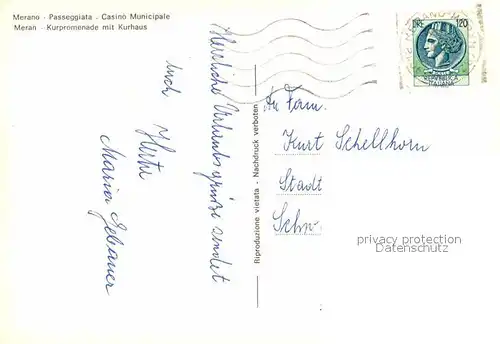 Merano - Passeggiata - Casinò Municipale
Meran - Kurpromenade mit Kurhaus
Herzliche Urlaubsgrüße sendet
Euch
Herta
Maria Gebauer
Riproduzione vietata - Nachdruck verboten
An Fam.
Kurt Schellhorn
Stadt
Schw.
120
privacy protection
Datenschutz